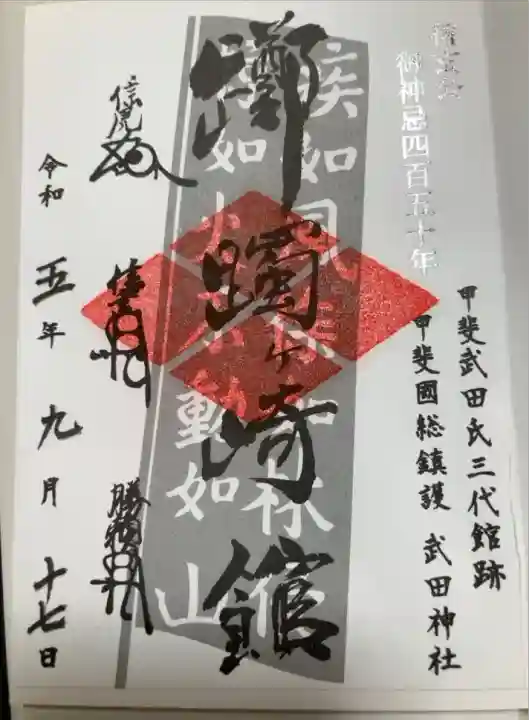 信玄公
御神忌四百五十年
甲斐武田氏三代館跡
甲斐國総鎮護 武田神社
躑躅ヶ崎館
疾如風徐如林侵
掠如火不動如山
信虎
信玄
勝頼
令和五年九月十七日